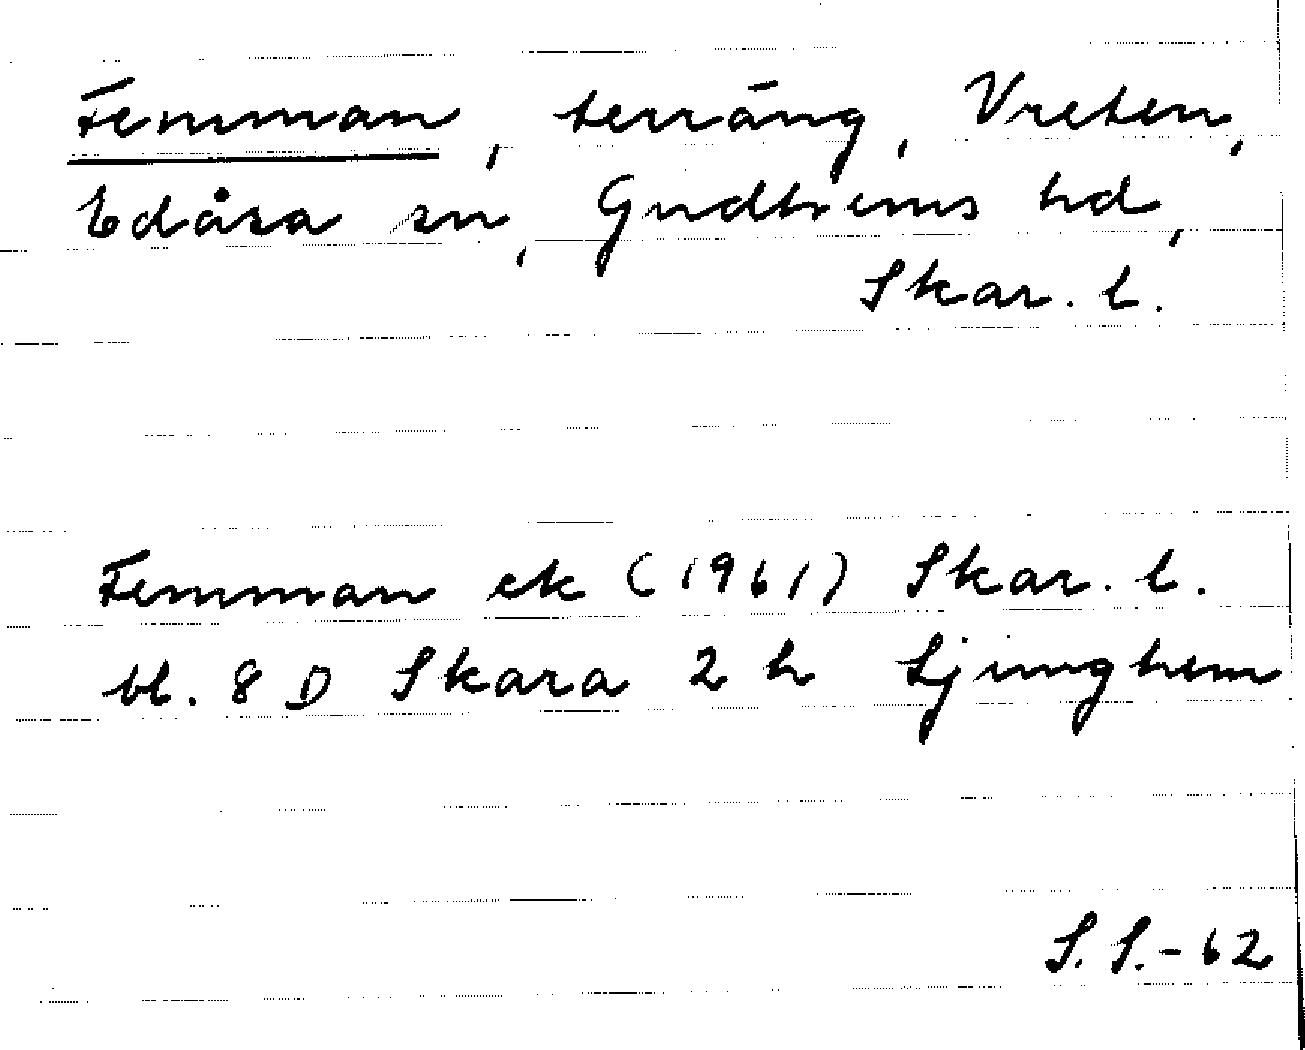 Femman, terräng, Vreten,
Edåsa sn, Gudhems hd,
Skar. l.
Femman ek (1961) Skar. l.
bl. 8 D Skara 2 h Ljunghem
S. S. - 62